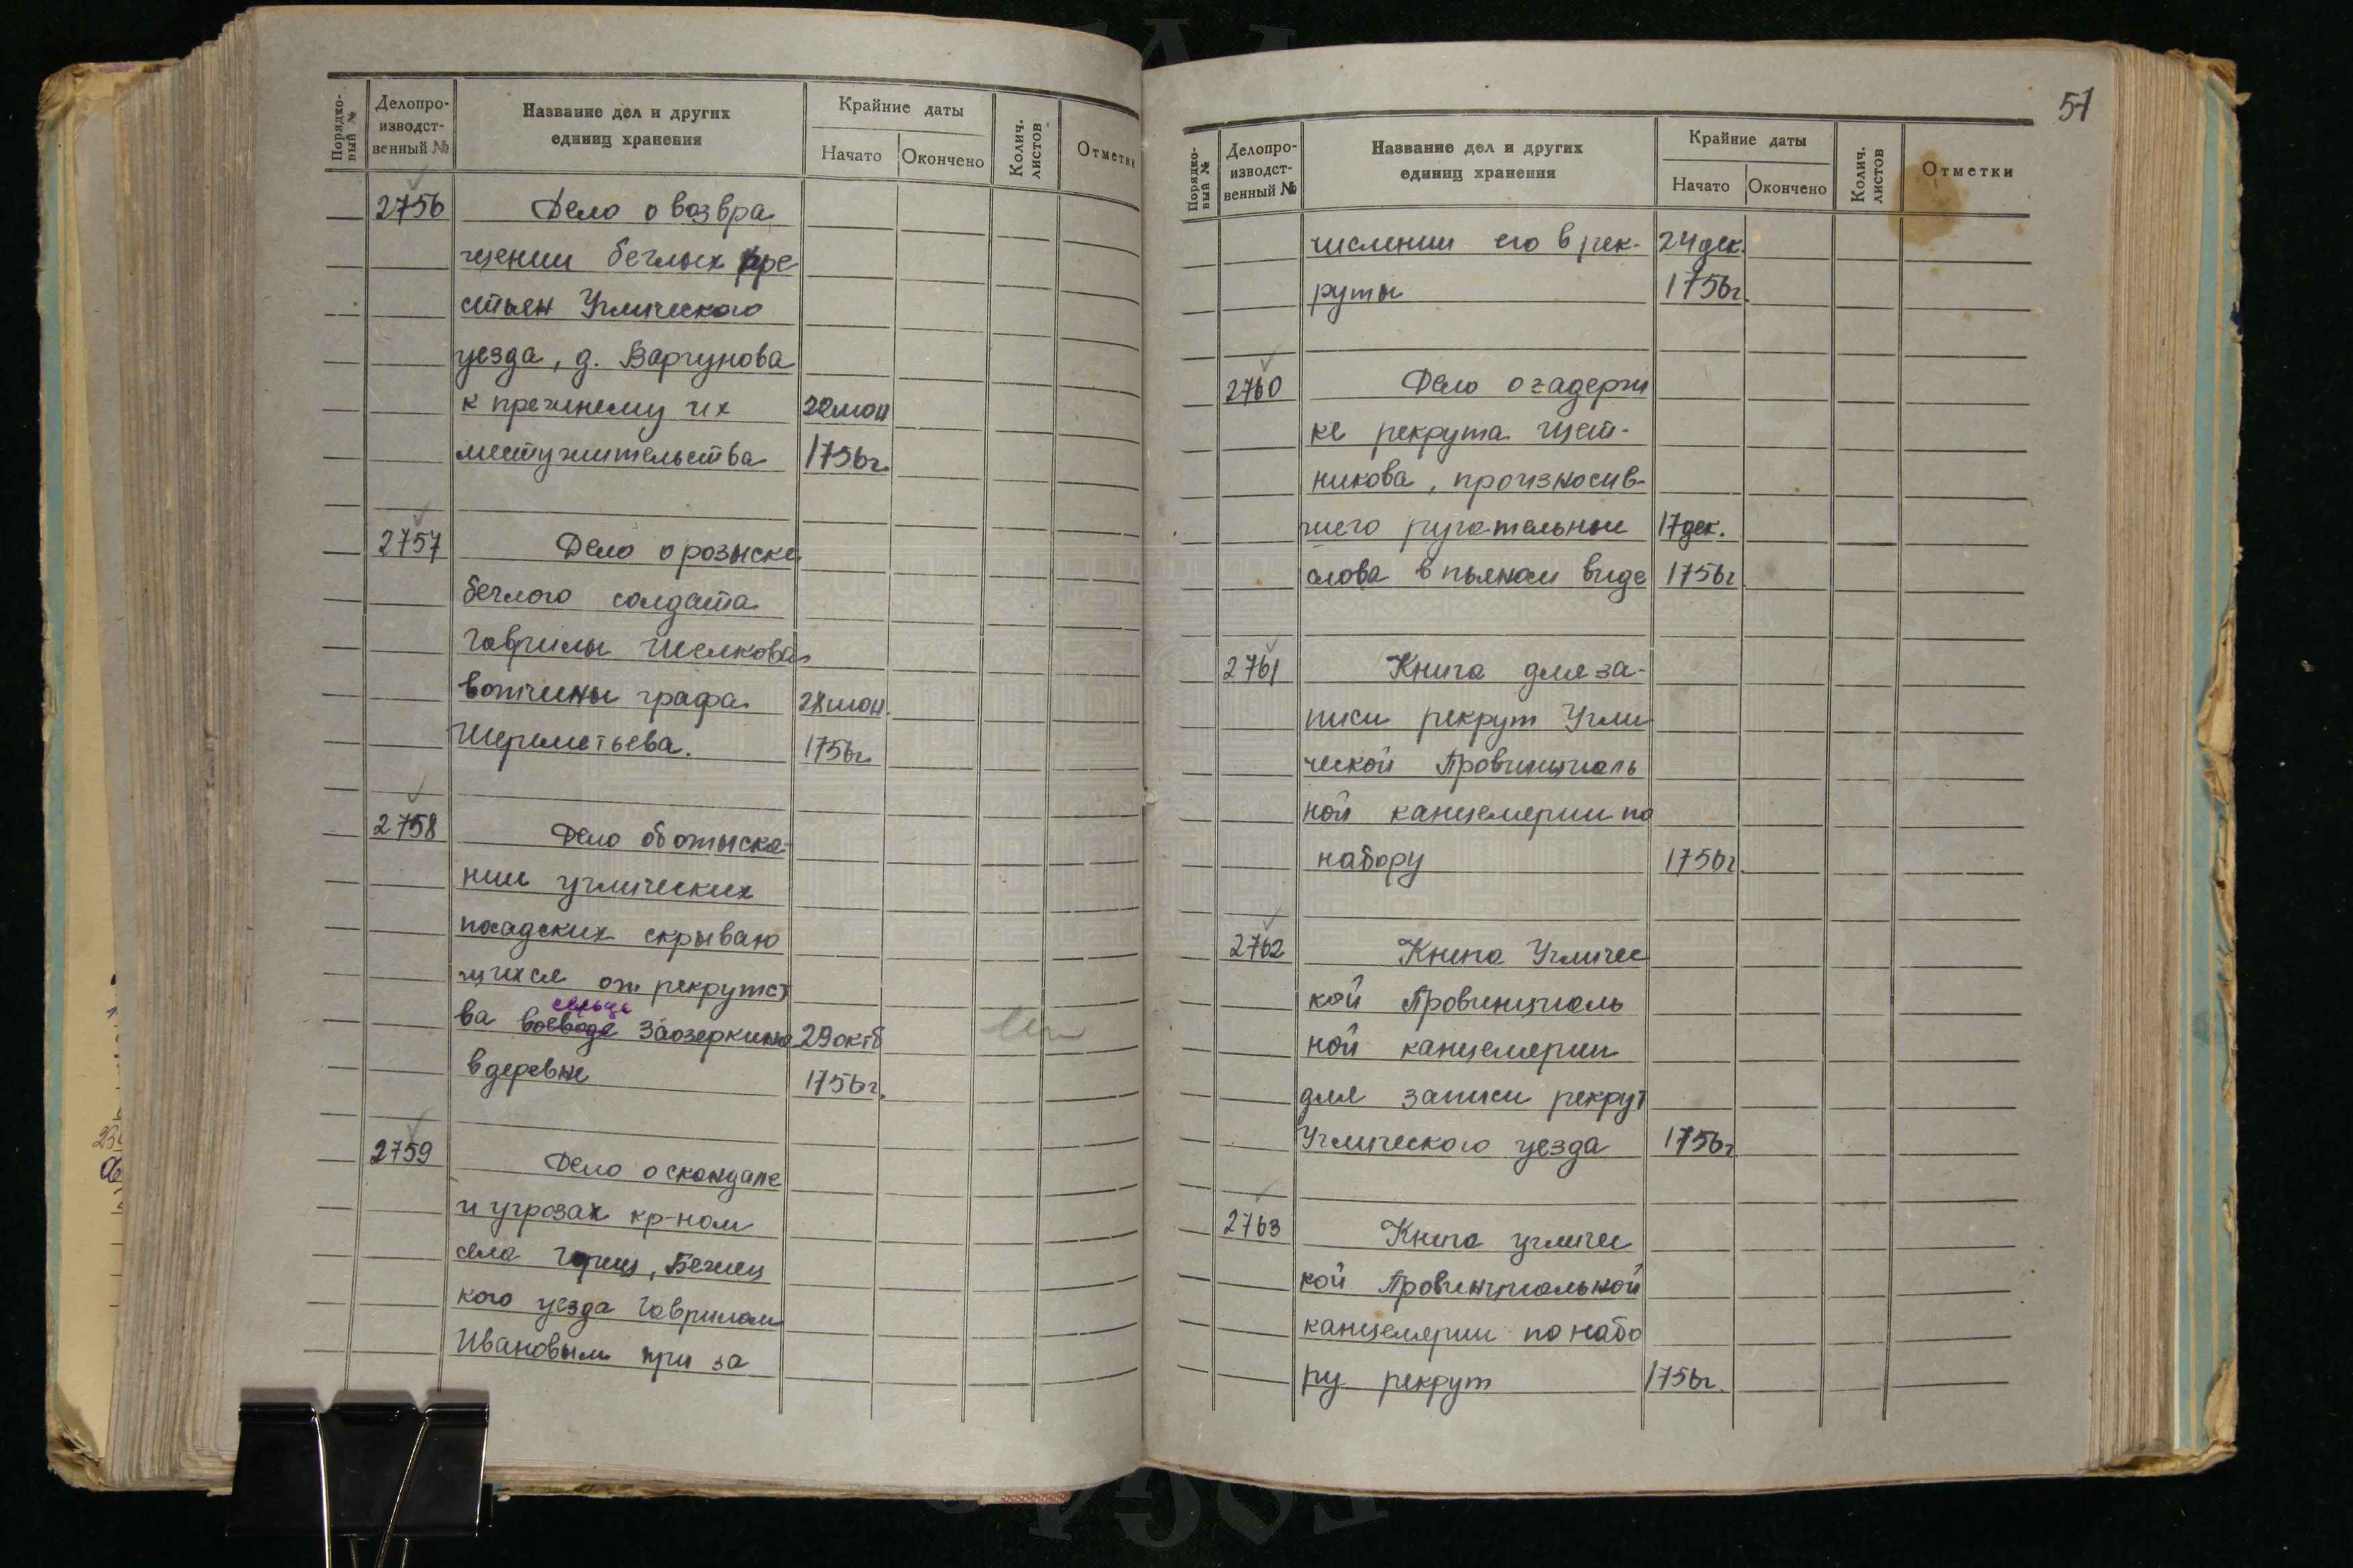 Порядко-
вый №
Делопро-
изводст-
венный №
Название дел и других
единиц хранения
Крайние даты
Начато
Окончено
Колич.
листов
Отметки
2756 Дело о возвра
щении беглых кре
стьен Углического
уезда, д. Варгунова
к прежнему их 22 июн
местужительства 1756г.
2757 Дело о розыске
беглого солдата
Гаврилы Шелкова
вотчины графа 28 июн.
Шереметьева. 1756г.
2758 Дело об отыска-
нии углических
посадских скрываю
щихся от рекрутст
сельце
ва воеводе Заозеркина 29 октб
в деревне 1756г.
2759 Дело о скандале
и угрозах кр-ном
села Гориц, Бежец
кого уезда Гаврилом
Ивановым при за
51
Порядко-
вый №
Делопро-
изводст-
венный №
Название дел и других
единиц хранения
Крайние даты
Начато
Окончено
Колич.
листов
Отметки
числении его в рек- 24 дек.
руты 1756г.
2760 Дело о задерж
ке рекрута Щет-
никова, произносив-
шего ругательные 17 дек.
слова в пьяном виде 1756г
2761 Книга для за-
писи рекрут Угли
ческой Провинциаль
ной канцелярии по
набору 1756г.
2762 Книга Угличес
кой Провинциаль
ной канцелярии
для записи рекрут
Углического уезда 1756г
2763 Книга угличес
кой Провинциальной
канцелярии по набо
ру рекрут 1756г.